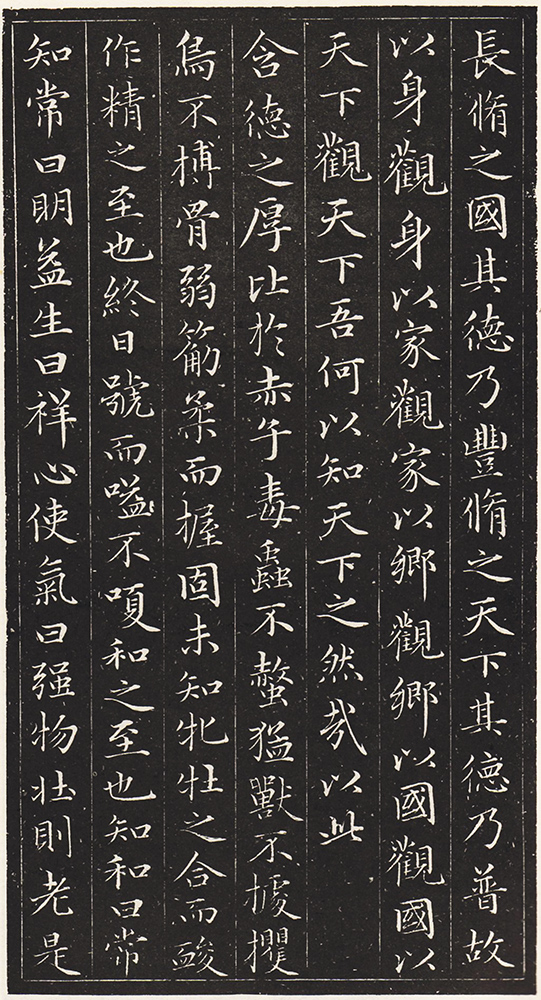 長脩之國其德乃豐脩之天下其德乃普故
以身觀身以家觀家以鄉觀鄉以國觀國以
天下觀天下吾何以知天下之然哉以此
含德之厚比於赤子毒蟲不螫猛獸不據攫
鳥不搏骨弱筋柔而握固未知牝牡之合而酸
作精之至也終日號而嗌不嗄和之至也知和曰常
知常曰明益生曰祥心使氣曰强物壯則老是